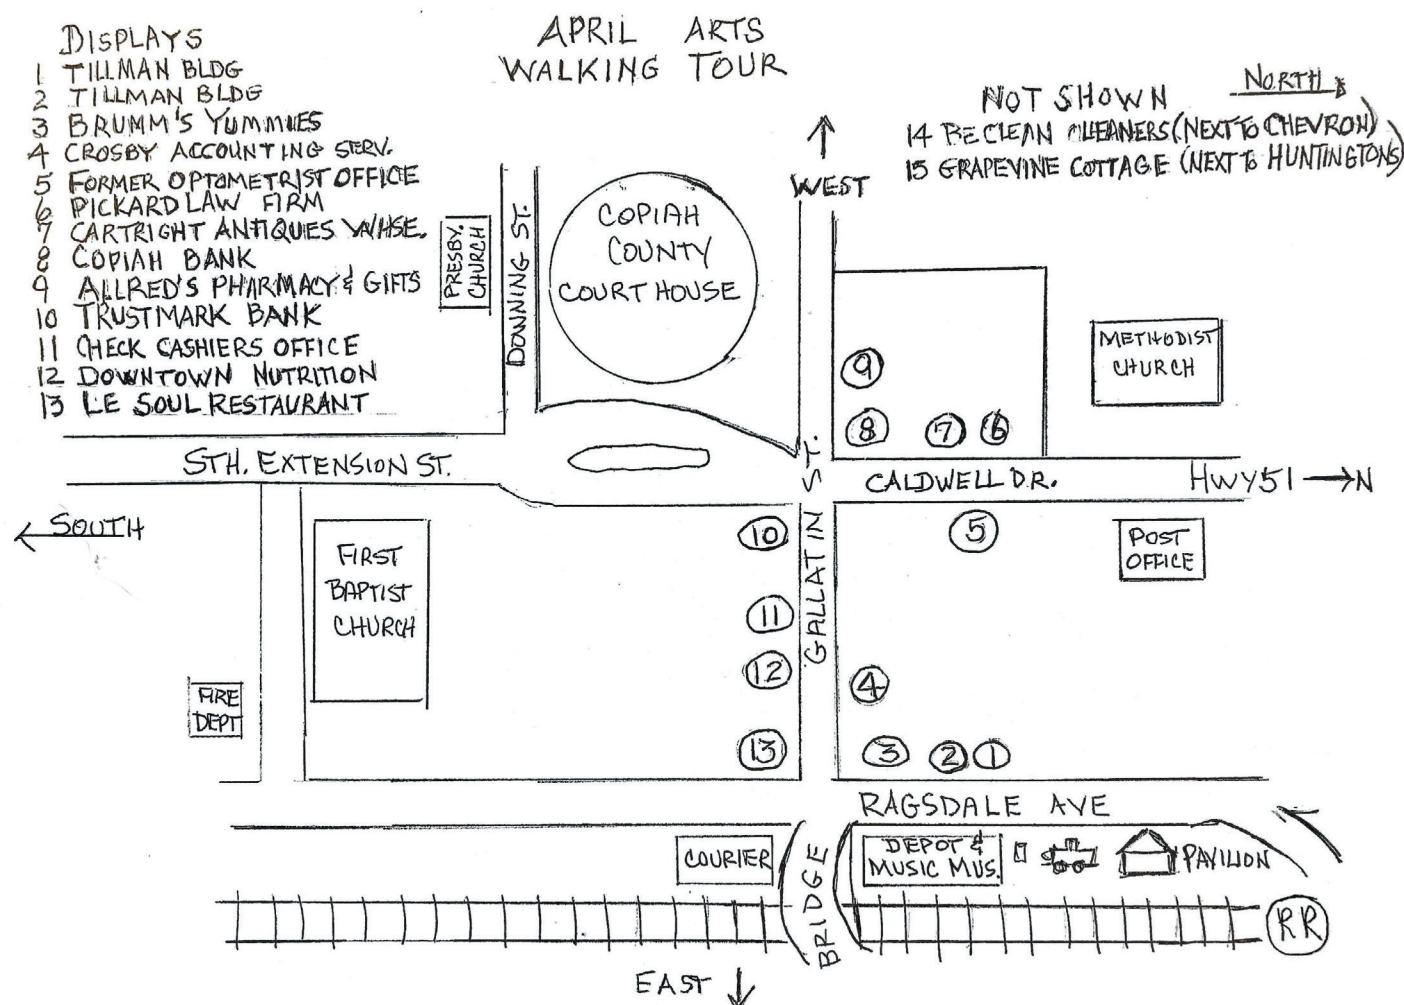 APRIL ARTS
WALKING TOUR
DISPLAYS
1 TILLMAN BLDG
2 TILLMAN BLDG
3 BRUMM'S YUMMIES
4 CROSBY ACCOUNTING SERV.
5 FORMER OPTOMETRIST OFFICE
6 PICKARD LAW FIRM
7 CARTRIGHT ANTIQUES WHSE.
8 COPIAH BANK
9 ALLRED'S PHARMACY & GIFTS
10 TRUSTMARK BANK
11 CHECK CASHIERS OFFICE
12 DOWNTOWN NUTRITION
13 LE SOUL RESTAURANT
NORTH
NOT SHOWN
14 BE CLEAN CLEANERS (NEXT TO CHEVRON)
15 GRAPEVINE COTTAGE (NEXT TO HUNTINGTONS)
WEST
PRESBY.
CHURCH
DOWNING ST.
COPIAH
COUNTY
COURT HOUSE
METHODIST
CHURCH
9
8
7
6
STH. EXTENSION ST.
GALLATIN ST.
CALDWELL DR.
HWY 51 → N
SOUTH
FIRST
BAPTIST
CHURCH
10
11
12
13
5
POST
OFFICE
4
3
2
1
FIRE
DEPT
RAGSDALE AVE
COURIER
BRIDGE
DEPOT &
MUSIC MUS.
PAVILION
RR
EAST